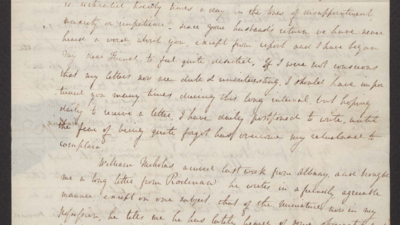 is
directly
a day in the
of disappointment
anxiety or impatience. since your husbands return we have never
heard a word about you except from report and I have begun
my dear Friend to feel quite
If I were not conscious
that my letters now are dull & uninteresting, I should have impor
tuned you many times during this long interval, but hoping
daily to receive a letter, I have daily postponed to write, until
the fear of being quite forgot has overcome my reluctance to
complain
William Nicholas arrived last week from Albany, and brought
me a long letter from
he writes in a
agreeable
manner except on one subject that of the miniature now in my
possession, he tells me he has lately heard of your